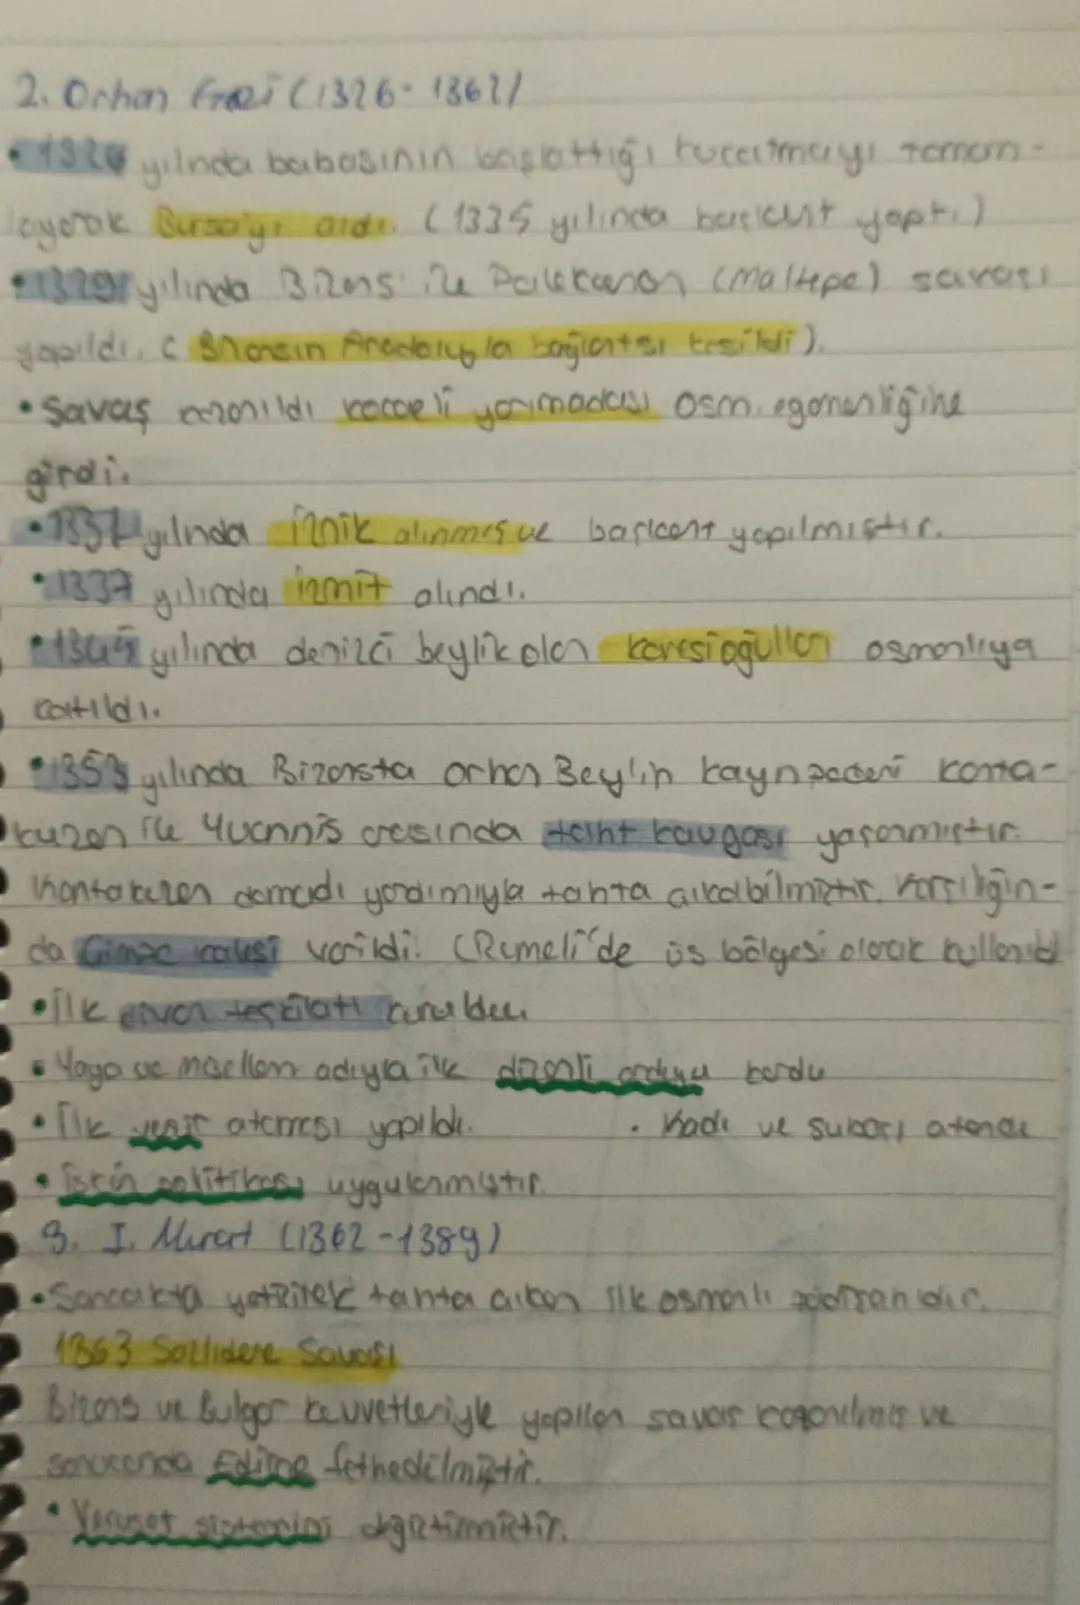 2. Orhan Gazi (1326-1362)
• 1326 yılında babasının başlattığı kuşatmayı tamam-
layarak Bursa'yı aldı. (1335 yılında başkent yaptı.)
• 1329 yılında Bizans ile Palekanon (Maltepe) savaşı
yapıldı. ( Bizansın Anadoluyla bağlantısı kesildi).
• Savaş kazanıldı kocaeli yarımadası osm. egemenliğine
girdi.
• 1331 yılında İznik alınmış ve başkent yapılmıştır.
• 1337 yılında izmit alındı.
• 1345 yılında denizci beylik olan karesioğulları osmanlıya
katıldı.
• 1353 yılında Bizansta orhan Bey'in kaynpederi konta-
kuzen ile Yuannis arasında taht kavgası yaşanmıştır.
Kontakuzen damadı yardımıyla tahta çıkabilmiştir. Karşılığın-
da Çimpe kalesi verildi. (Rumeli'de üs bölgesi olarak kullanıldı
• İlk divan teşkilatı kuruldu
• Yaya ve müsellem adıyla ilk düzenli orduyu kurdu
• İlk vezir ataması yapıldı. • Kadı ve subaşı atandı
• iskân politikası uygulanmıştır.
3. I. Murat (1362-1389)
• Sancakta yetişirek tahta çıkan ilk osmanlı padişahıdır.
1363 Sazlıdere Savaşı
Bizans ve Bulgar kuvvetleriyle yapılan savaş kazanılmış ve
sonucunda Edirne fethedilmiştir.
• Veraset sistemini değiştirmiştir.